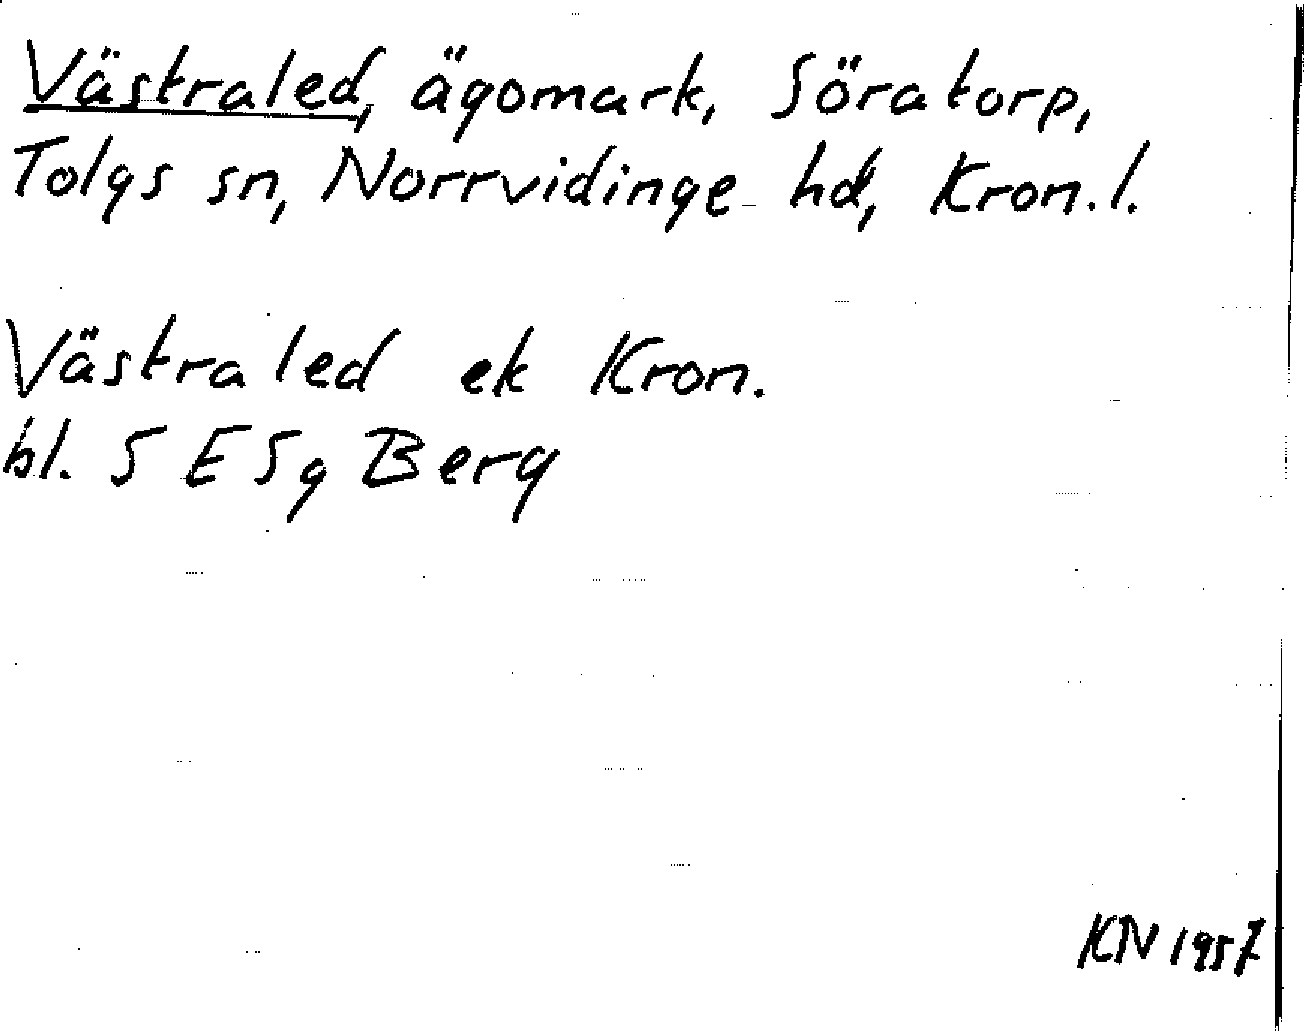 Västraled, ägomark, Söratorp,
Tolgs sn, Norrvidinge hd, Kron. l.
Västraled ek Kron.
bl. 5 E 5g Berg
KN 1957